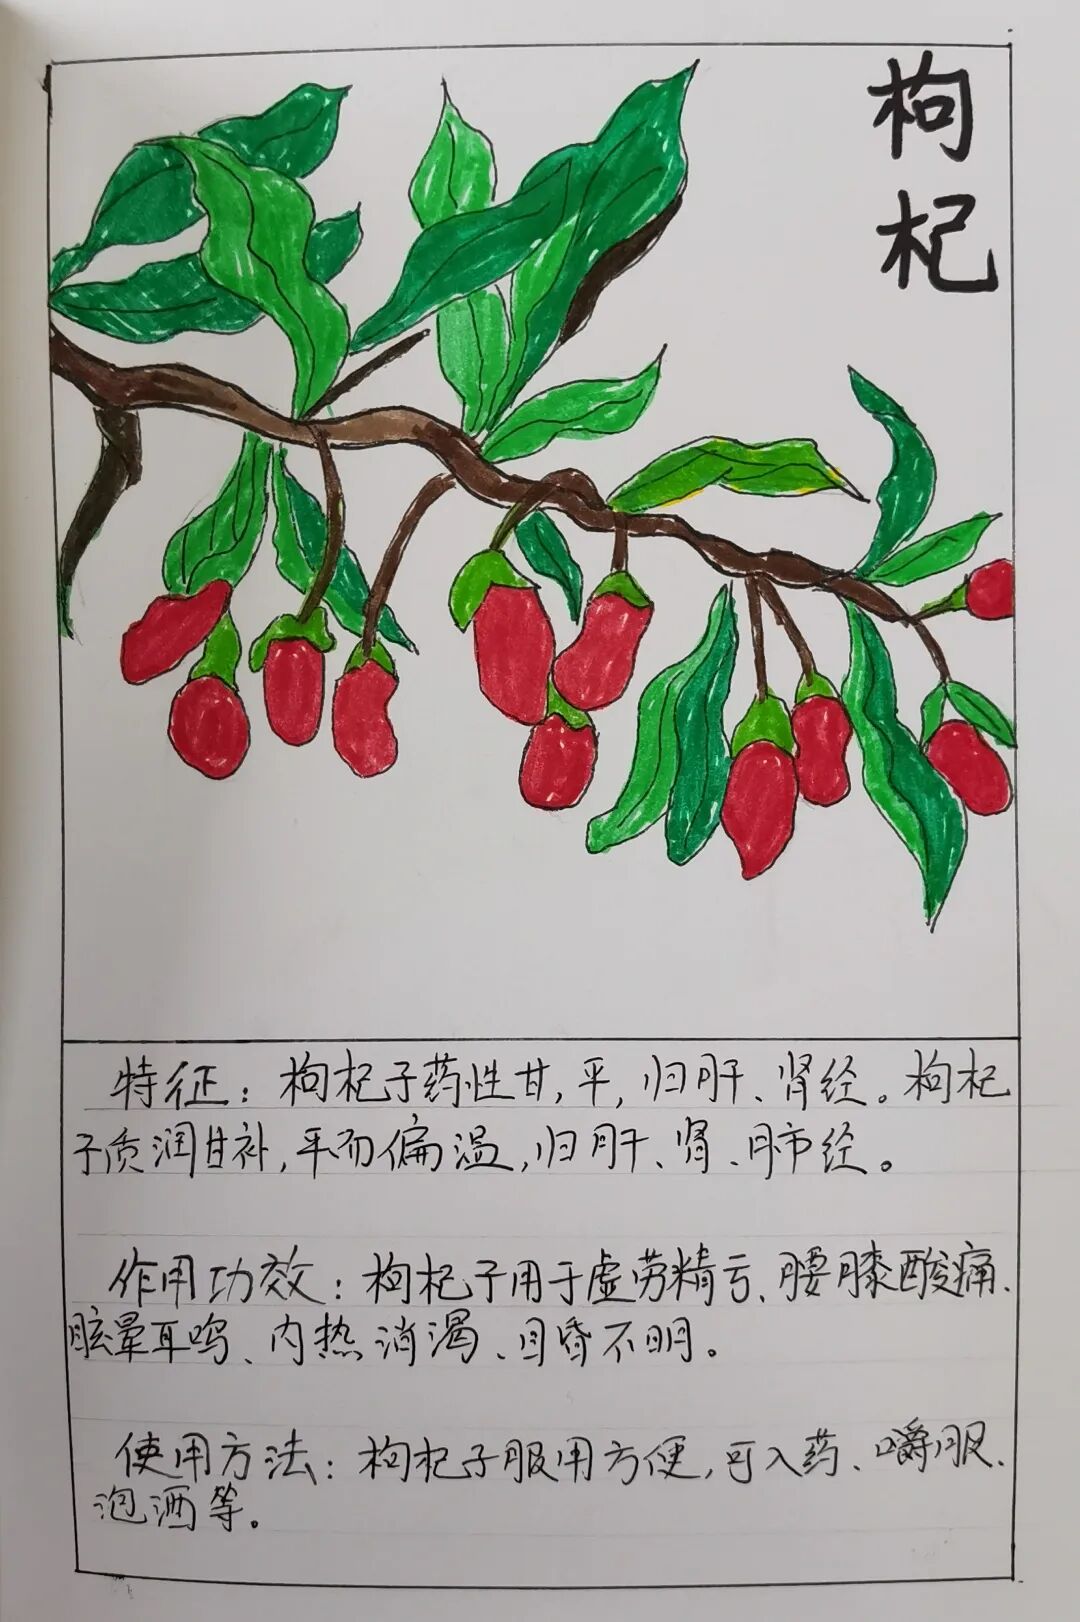 枸杞
特征：枸杞子药性甘,平,归肝、肾经。枸杞
子质润甘补,平而偏温,归肝、肾、肺经。
作用功效：枸杞子用于虚劳精亏、腰膝酸痛、
眩晕耳鸣、内热消渴、目昏不明。
使用方法：枸杞子服用方便,可入药、嚼服、
泡酒等。